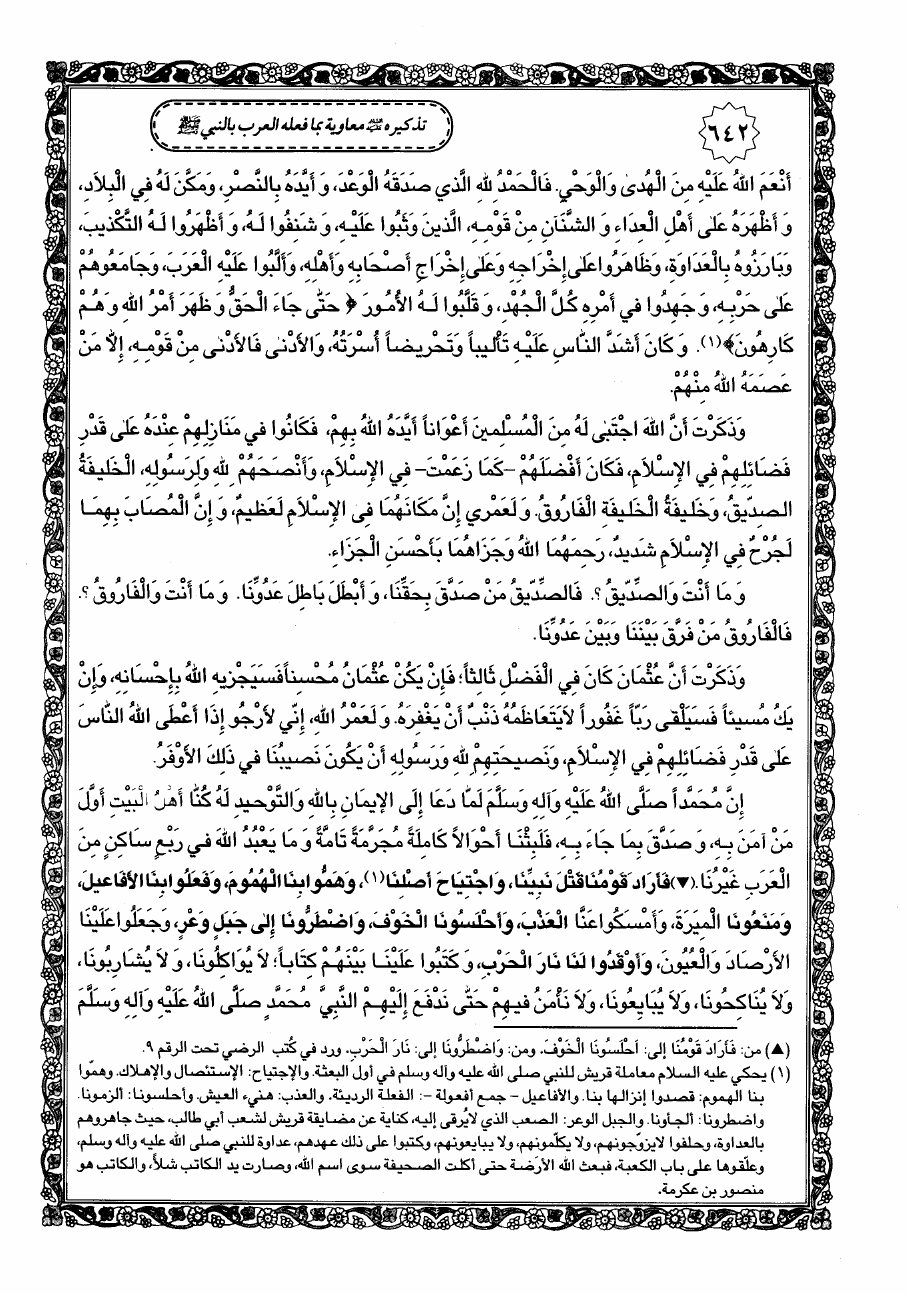 ٦٤٢
تذكيره عليه السلام معاوية بما فعله العرب بالنبي ﷺ
أَنْعَمَ اللهُ عَلَيْهِ مِنَ الْهُدىٰ وَالْوَحْيِ. فَالْحَمْدُ لِلهِ الَّذي صَدَقَهُ الْوَعْدَ، وَ أَيَّدَهُ بِالنَّصْرِ، وَمَكَّنَ لَهُ فِي الْبِلَادِ،
وَ أَظْهَرَهُ عَلىٰ أَهْلِ الْعِدَاءِ وَ الشَّنَآنِ مِنْ قَوْمِهِ، الَّذينَ وَثَبُوا عَلَيْهِ، وَ شَنَفُوا لَهُ، وَ أَظْهَرُوا لَهُ التَّكْذيبَ،
وَبَارَزُوهُ بِالْعَدَاوَةِ، وَظَاهَرُوا عَلىٰ إِخْرَاجِهِ وَعَلىٰ إِخْرَاجِ أَصْحَابِهِ وَأَهْلِهِ، وَأَلَّبُوا عَلَيْهِ الْعَرَبَ، وَجَامَعُوهُمْ
عَلىٰ حَرْبِهِ، وَ جَهِدُوا في أَمْرِهِ كُلَّ الْجُهْدِ، وَ قَلَّبُوا لَهُ الأُمُورَ ﴿ حَتّٰى جَاءَ الْحَقُّ وَ ظَهَرَ أَمْرُ اللهِ وَ هُمْ
كَارِهُونَ﴾(١). وَ كَانَ أَشَدَّ النّاسِ عَلَيْهِ تَأْليباً وَتَحْريضاً أُسْرَتُهُ، وَالأَدْنىٰ فَالأَدْنىٰ مِنْ قَوْمِهِ، إِلاّ مَنْ
عَصَمَهُ اللهُ مِنْهُمْ.
وَذَكَرْتَ أَنَّ اللهَ اجْتَبىٰ لَهُ مِنَ الْمُسْلِمينَ أَعْوَاناً أَيَّدَهُ اللهُ بِهِمْ، فَكَانُوا في مَنَازِلِهِمْ عِنْدَهُ عَلىٰ قَدْرِ
فَضَائِلِهِمْ فِي الإِسْلَامِ، فَكَانَ أَفْضَلَهُمْ –كَمَا زَعَمْتَ– فِي الإِسْلَامِ، وَأَنْصَحَهُمْ لِلهِ وَلِرَسُولِهِ، الْخَليفَةُ
الصِدّيقُ، وَخَليفَةُ الْخَليفَةِ الْفَارُوقُ. وَ لَعَمْري إِنَّ مَكَانَهُمَا فِى الإِسْلَامِ لَعَظيمٌ، وَ إِنَّ الْمُصَابَ بِهِمَا
لَجُرْحٌ فِي الإِسْلَامِ شَديدٌ، رَحِمَهُمَا اللهُ وَجَزَاهُمَا بِأَحْسَنِ الْجَزَاءِ.
وَ مَا أَنْتَ وَالصِّدّيقُ ؟. فَالصِّدّيقُ مَنْ صَدَّقَ بِحَقِّنَا، وَ أَبْطَلَ بَاطِلَ عَدُوِّنَا. وَ مَا أَنْتَ وَالْفَارُوقُ ؟.
فَالْفَارُوقُ مَنْ فَرَّقَ بَيْنَنَا وَبَيْنَ عَدُوِّنَا.
وَذَكَرْتَ أَنَّ عُثْمَانَ كَانَ فِي الْفَضْلِ ثَالِثاً؛ فَإِنْ يَكُنْ عُثْمَانُ مُحْسِناً فَسَيَجْزيهِ اللهُ بِإِحْسَانِهِ، وَإِنْ
يَكُ مُسيئاً فَسَيَلْقىٰ رَبّاً غَفُوراً لَايَتَعَاظَمُهُ ذَنْبٌ أَنْ يَغْفِرَهُ. وَ لَعَمْرُ اللهِ، إِنّي لأَرْجُو إِذَا أَعْطَى اللهُ النّاسَ
عَلىٰ قَدْرِ فَضَائِلِهِمْ فِي الإِسْلَامِ، وَنَصيحَتِهِمْ لِلهِ وَرَسُولِهِ أَنْ يَكُونَ نَصيبُنَا في ذَلِكَ الأَوْفَرُ.
إِنَّ مُحَمَّداً صَلَّى اللهُ عَلَيْهِ وَآلِهِ وَسَلَّمَ لَمّا دَعَا إِلَى الإيمَانِ بِاللهِ وَالتَّوْحيدِ لَهُ كُنّا أَهْلُ الْبَيْتِ أَوَّلَ
مَنْ آمَنَ بِهِ، وَ صَدَّقَ بِمَا جَاءَ بِهِ، فَلَبِثْنَا أَحْوَالاً كَامِلَةً مُجَرَّمَةً تَامَّةً وَ مَا يَعْبُدُ اللهَ في رَبْعٍ سَاكِنٍ مِنَ
الْعَرَبِ غَيْرُنَا.(▼)فَأَرَادَ قَوْمُنَا قَتْلَ نَبِيِّنَا، وَاجْتِيَاحَ أَصْلِنَا(١)، وَهَمُّوا بِنَا الْهُمُومَ، وَفَعَلُوا بِنَا الأَفَاعيلَ،
وَمَنَعُونَا الْميرَةَ، وَأَمْسَكُوا عَنَّا الْعَذْبَ، وَأَحْلَسُونَا الْخَوْفَ، وَاضْطَرُّونَا إِلىٰ جَبَلٍ وَعْرٍ، وَجَعَلُوا عَلَيْنَا
الأَرْصَادَ وَالْعُيُونَ، وَأَوْقَدُوا لَنَا نَارَ الْحَرْبِ، وَ كَتَبُوا عَلَيْنَا بَيْنَهُمْ كِتَاباً؛ لَا يُوَاكِلُونَا، وَ لَا يُشَارِبُونَا،
وَلَا يُنَاكِحُونَا، وَلَا يُبَايِعُونَا، وَلَا نَأْمَنُ فيهِمْ حَتّٰى نَدْفَعَ إِلَيْهِمْ النَّبِيَّ مُحَمَّدٍ صَلَّى اللهُ عَلَيْهِ وَآلِهِ وَسَلَّمَ
(▲) من: فَأَرَادَ قَوْمُنَا إلى: أَحْلَسُونَا الْخَوْفَ. ومن: وَاضْطَرُّونَا إلى: نَارَ الْحَرْبِ. ورد في كُتب الرضي تحت الرقم ٩.
(١) يحكي عليه السلام معاملة قريش للنبي صلى الله عليه وآله وسلم في أول البعثة. والإجتياح: الإستئصال والإهلاك. وهمّوا
بنا الهموم: قصدوا إنزالها بنا. والأفاعيل – جمع أفعولة –: الفعلة الرديئة. والعذب: هنيء العيش. وأحلسونا: ألزمونا.
واضطرونا: ألجأونا. والجبل الوعر: الصعب الذي لايُرقى إليه، كناية عن مضايقة قريش لشعب أبي طالب، حيث جاهروهم
بالعداوة، وحلفوا لايزوّجونهم، ولا يكلّمونهم، ولا يبايعونهم، وكتبوا على ذلك عهدهم، عداوة للنبي صلى الله عليه وآله وسلم،
وعلّقوها على باب الكعبة، فبعث الله الأرَضة حتى أكلت الصحيفة سوى اسم الله، وصارت يد الكاتب شلأً، والكاتب هو
منصور بن عكرمة.